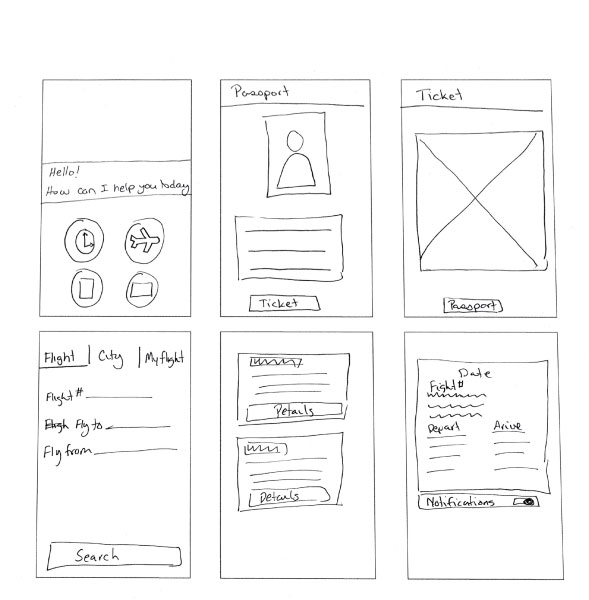 Hello!
How can I help you today
Passport
Ticket
Ticket
Passport
Flight | City | My flight
Flight #
Fly to
Fly from
Search
Details
Details
Date
Fight #
Depart Arive
Notifications